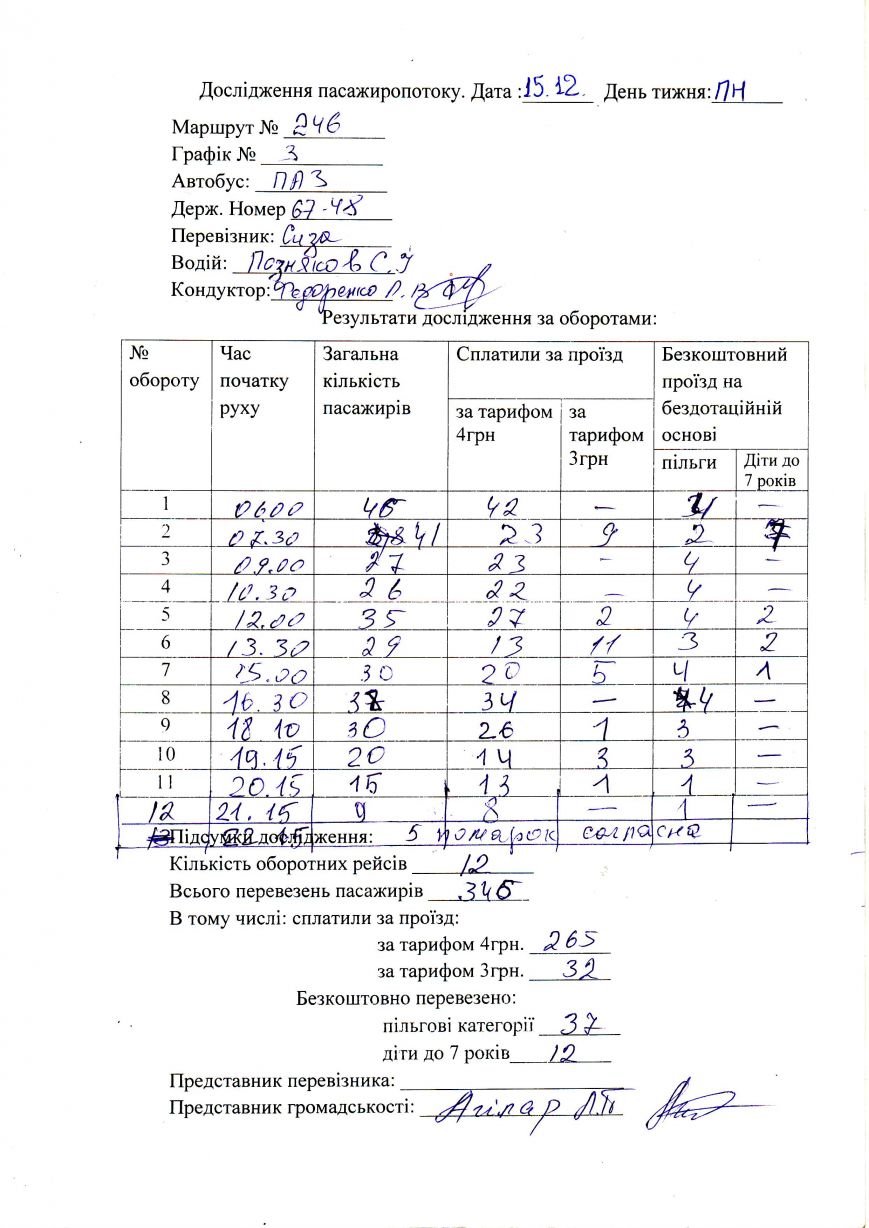 Дослідження пасажиропотоку. Дата : 15.12. День тижня: ПН
Маршрут № 246
Графік № 3
Автобус: ПАЗ
Держ. Номер 67-48
Перевізник: Сиза
Водій: Позняков С.І
Кондуктор: Федоренко Л.В
Результати дослідження за оборотами:
№ обороту Час початку руху Загальна кількість пасажирів Сплатили за проїзд Безкоштовний проїзд на бездотаційній основі
за тарифом 4грн за тарифом 3грн пільги Діти до 7 років
1 06.00 46 42 — 4 —
2 07.30 41 23 9 2 7
3 09.00 27 23 - 4 —
4 10.30 26 22 — 4 —
5 12.00 35 27 2 4 2
6 13.30 29 13 11 3 2
7 15.00 30 20 5 4 1
8 16.30 38 34 — 4 —
9 18 10 30 26 1 3 —
10 19.15 20 14 3 3 —
11 20.15 15 13 1 1 —
12 21.15 9 8 — 1 —
Підсумки дослідження: 5 помарок согласна
Кількість оборотних рейсів 12
Всього перевезень пасажирів 346
В тому числі: сплатили за проїзд:
за тарифом 4грн. 265
за тарифом 3грн. 32
Безкоштовно перевезено:
пільгові категорії 37
діти до 7 років 12
Представник перевізника:
Представник громадськості: